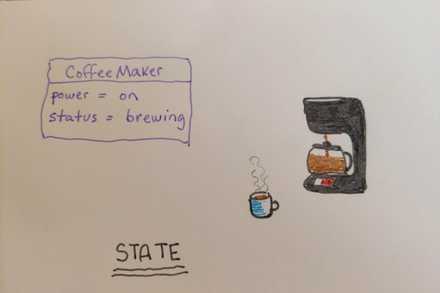 Coffee Maker
power = on
status = brewing
STATE